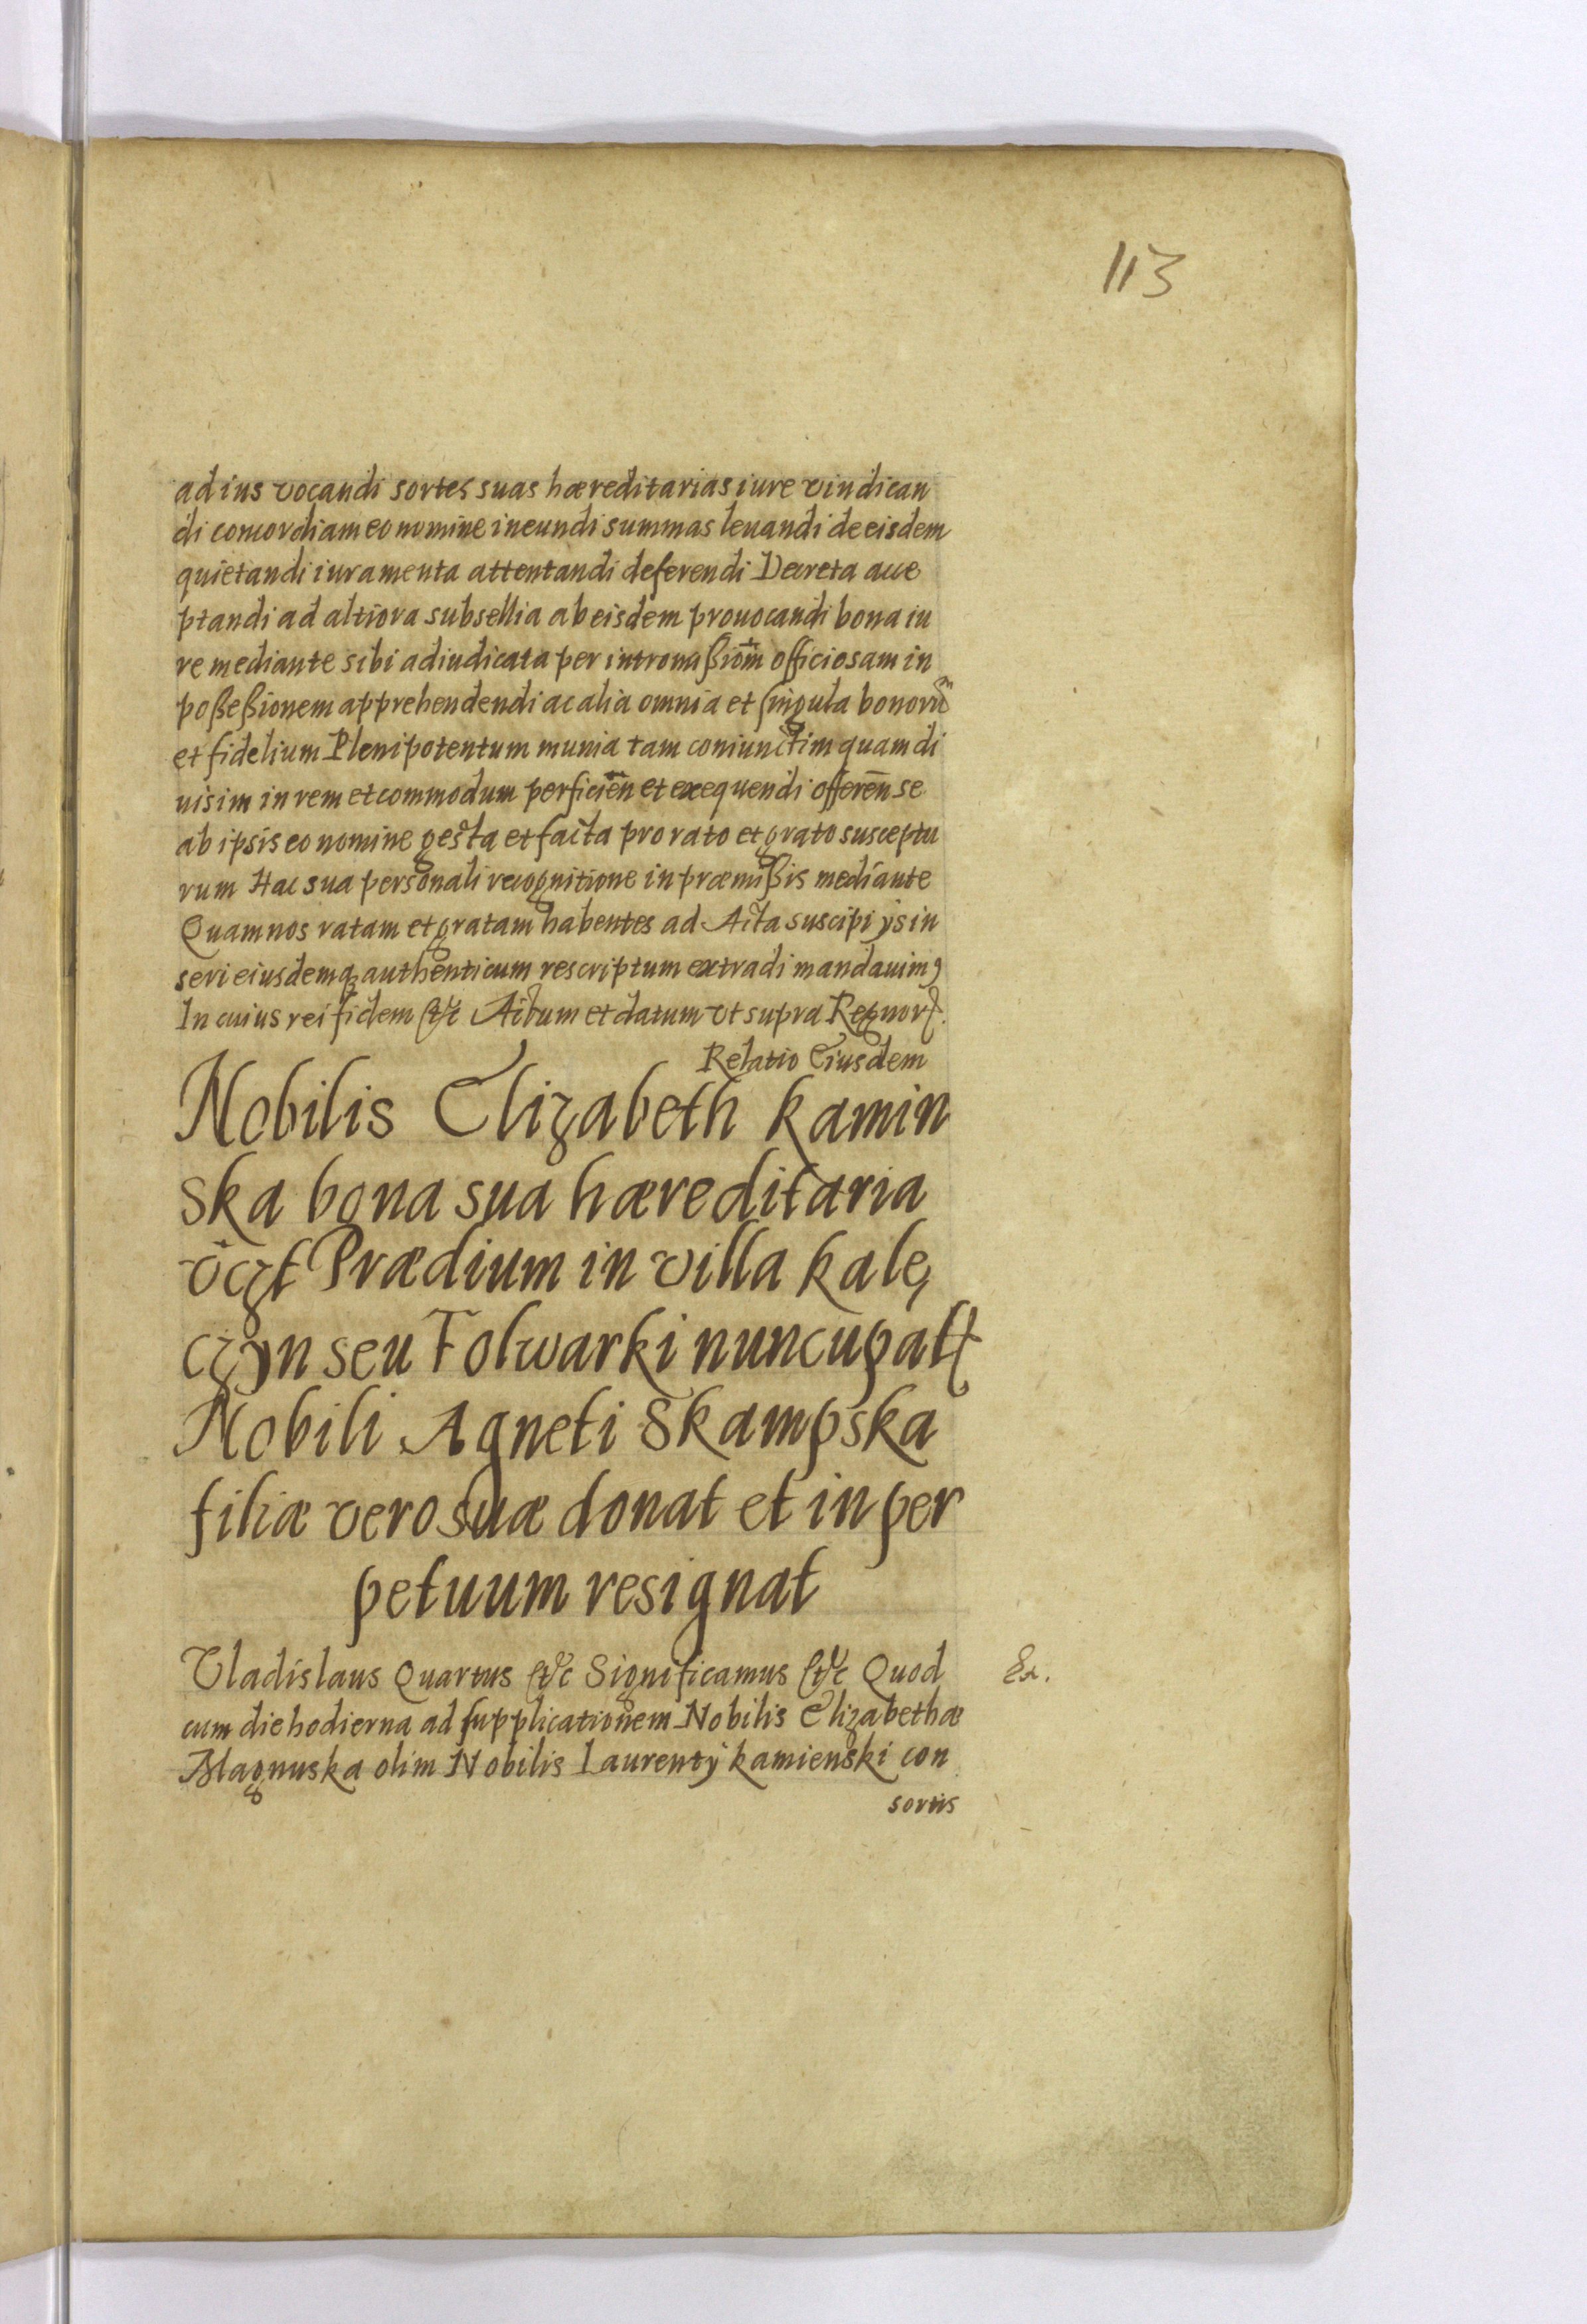 113
ad ius vocandi sortes suas hæreditarias iure vindican
di concordiam eo nomine ineundi summas leuandi de eisdem
quietandi iuramenta attentandi deferendi Decreta acce
ptandi ad altiora subsellia ab eisdem prouocandi bona iu
re mediante sibi adiudicata per intromißiom̄ officiosam in
poßeßionem apprehendendi ac alia omnia et singula bonorū
et fidelium Plenipotentum munia tam coniunctim quam di
uisim in rem et commodum perficien̄ et exequendi offeren̄ se
ab ipsis eo nomine gesta et facta pro rato et grato susceptu
rum Hac sua personali recognitione in præmißis mediante
Quam nos ratam et gratam habentes ad Acta suscipi ijs in
seri eiusdemq; authenticum rescriptum extradi mandauim9
In cuius rei fidem etc Actum et datum vt supra Regnor
Relatio Eiusdem
Nobilis Elizabeth Kamin
ska bona sua hæreditaria
vczt Prædium in villa Kalę
czyn seu Folwarki nuncupat
Nobili Agneti Skampska
filiæ vero suæ donat et in per
petuum resignat
Vladislaus Quartus etc Significamus etc Quod
Ex.
cum die hodierna ad supplicationem Nobilis Elizabethæ
Magnuska olim Nobilis Laurentij Kamienski con
sortis